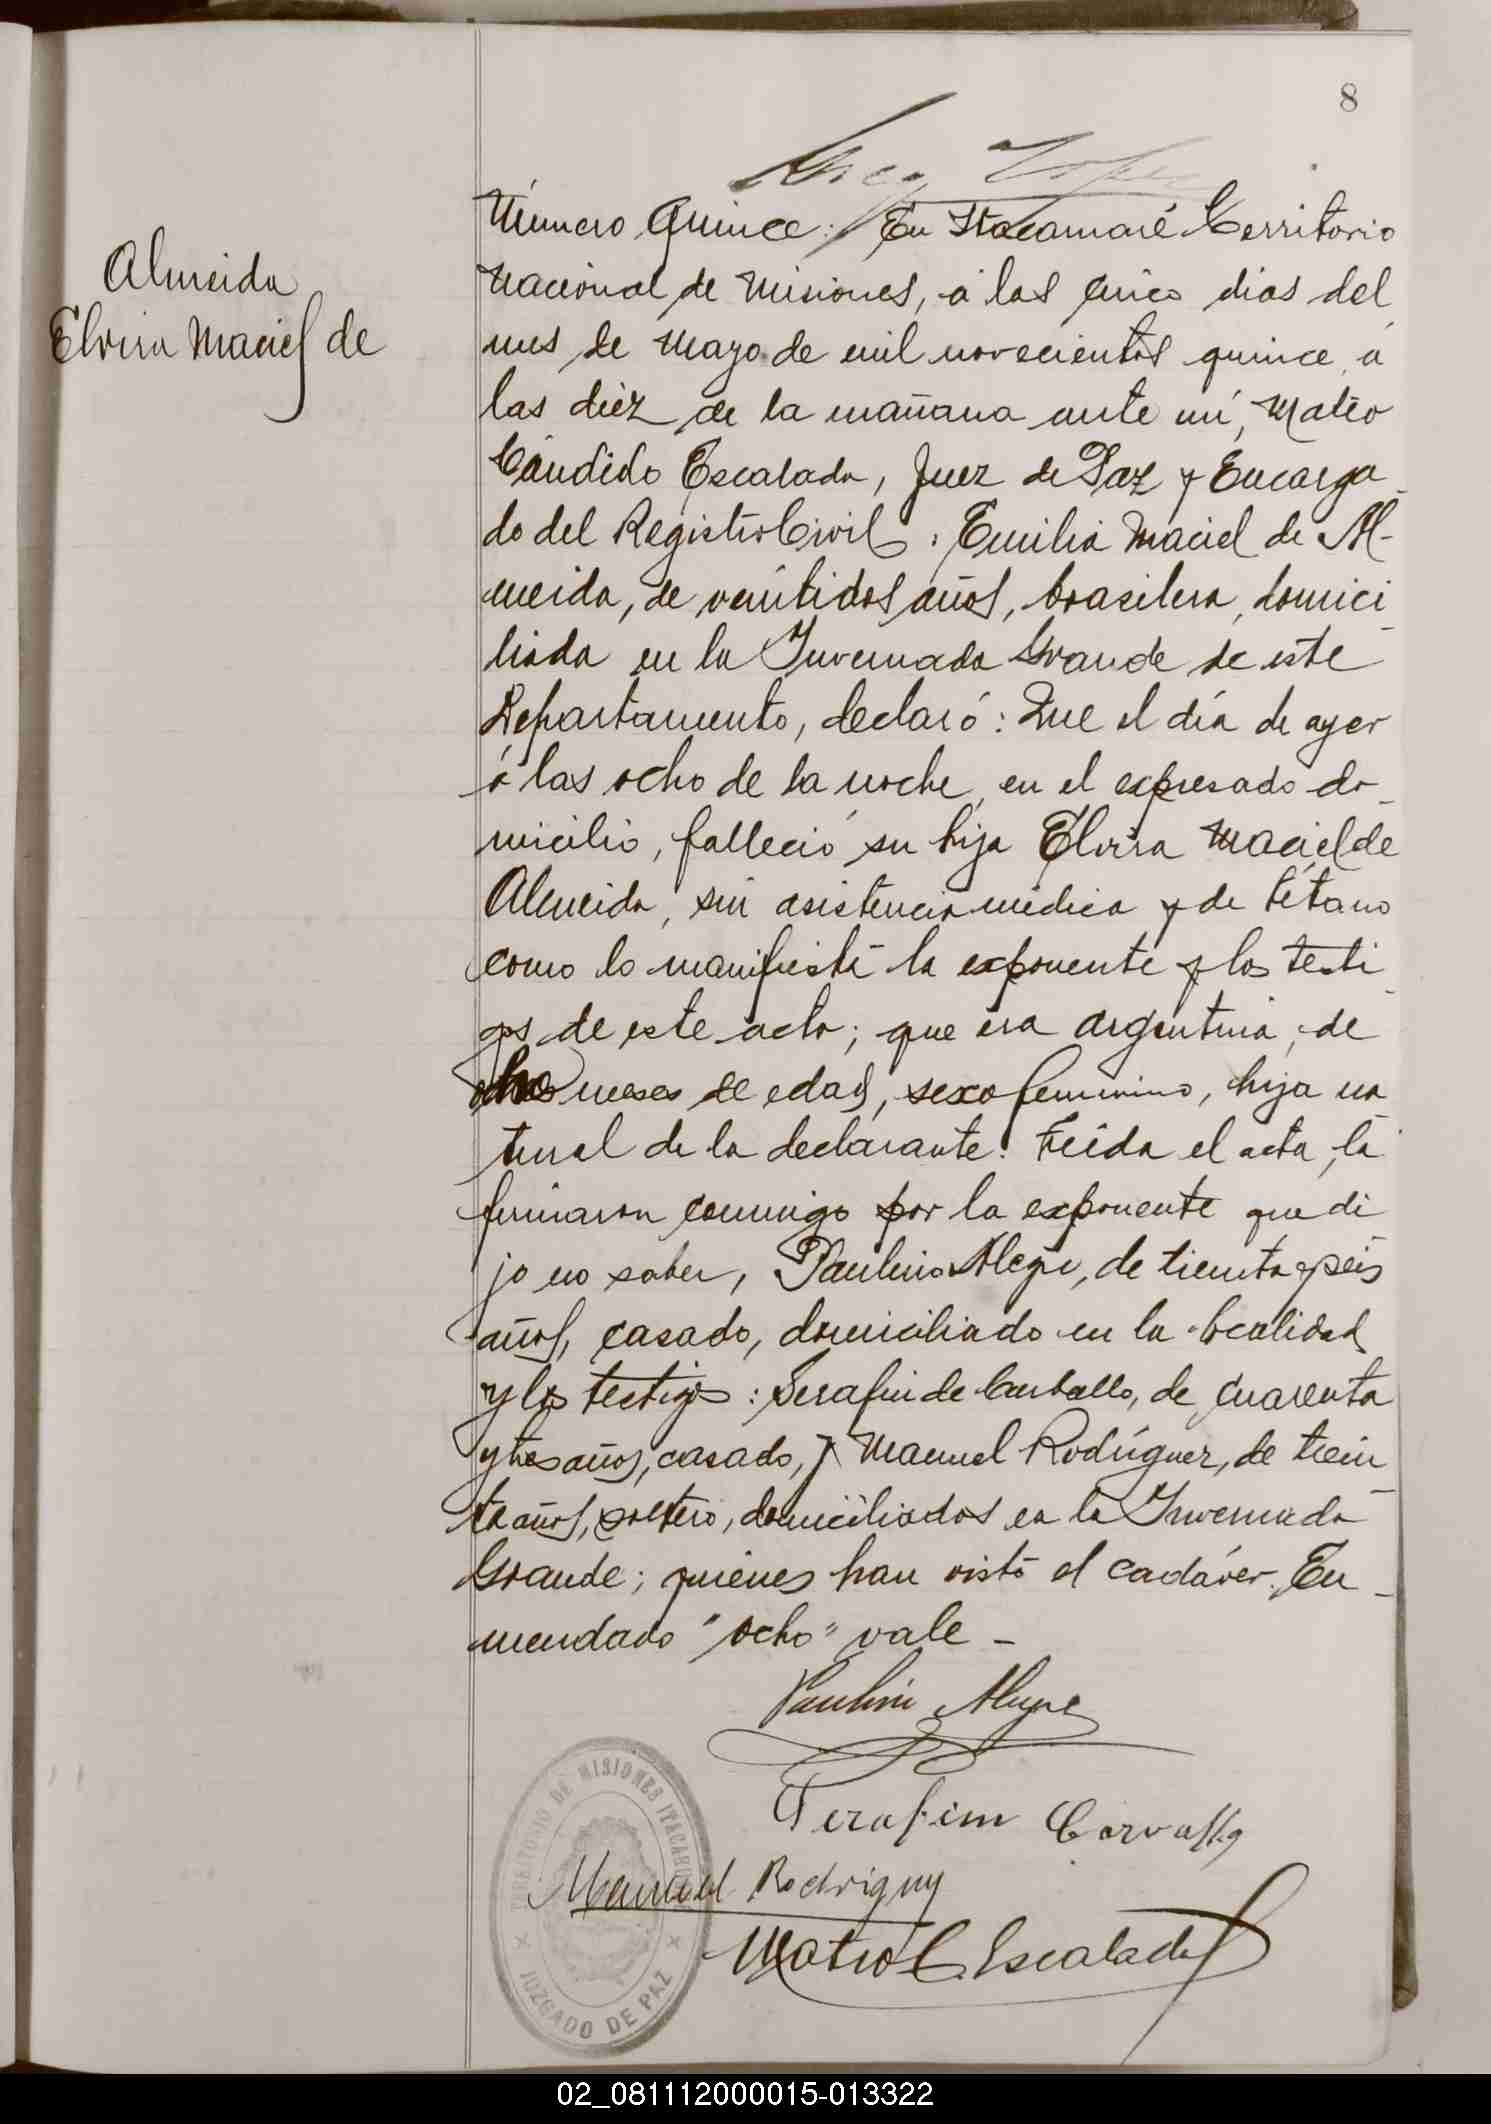 8
Almeida
Elvira Maciel de
Número Quince: En Itacaruaré Territorio
Nacional de Misiones, á las cinco dias del
mes de Mayo de mil novecientos quince, á
las diez de la mañana ante mí, Mateo
Cándido Escalada, Juez de Paz y Encarga-
do del Registro Civil: Emilia Maciel de Al-
meida, de veintidos años, brasilera, domici-
liada en la Invernada Grande de este
Departamento, declaró: Que el día de ayer
á las ocho de la noche, en el expresado do-
micilio, falleció su hija Elvira Maciel de
Almeida, sin asistencia médica y de tétano
como lo manifiesta la exponente y los testi-
gos de este acto; que era argentina, de
ocho meses de edad, sexo femenino, hija na-
tural de la declarante. Leída el acta, la
firmaron conmigo por la exponente que di-
jo no saber, Paulino Alegre, de treinta y seis
años, casado, domiciliado en la localidad
y los testigos: Serafin de Carballo, de cuarenta
y tres años, casado, y Manuel Rodríguez, de trein-
ta años, soltero, domiciliados en la Invernada
Grande; quienes han visto el cadáver. En-
mendado "ocho" vale -
Paulino Alegre
Serafim Carvallo
Manuel Rodriguez
Mateo C. Escalada
TERRITORIO DE MISIONES ITACARUARE
JUZGADO DE PAZ
02_081112000015-013322